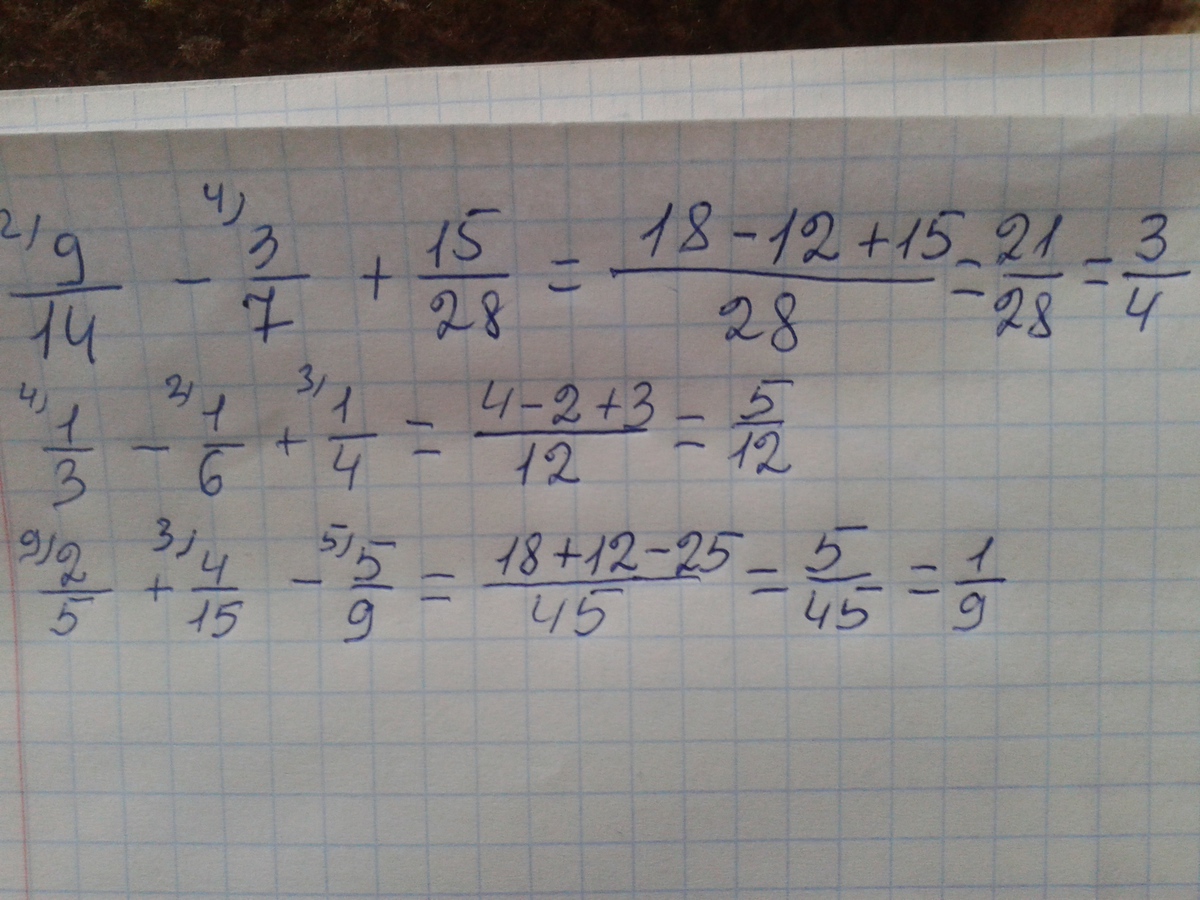 2) 9/14 - 4) 3/7 + 15/28 = 18-12+15/28 = 21/28 = 3/4
4) 1/3 - 2) 1/6 + 3) 1/4 = 4-2+3/12 = 5/12
9) 2/5 + 3) 4/15 - 5) 5/9 = 18+12-25/45 = 5/45 = 1/9